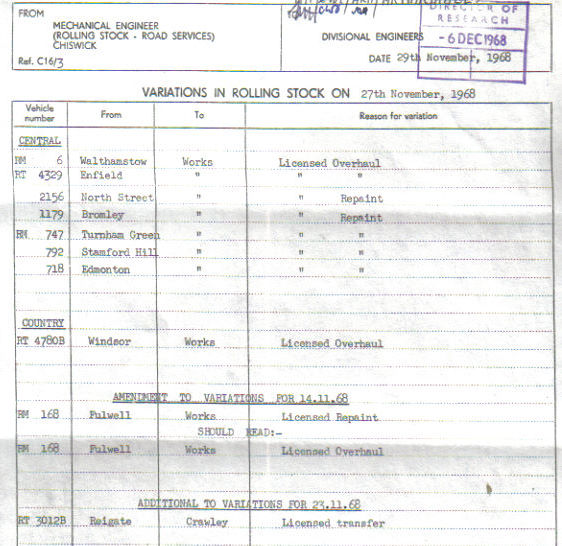 DIRECTOR OF
RESEARCH
-6 DEC 1968
FROM
MECHANICAL ENGINEER
(ROLLING STOCK - ROAD SERVICES)
CHISWICK
Ref. C16/3
DIVISIONAL ENGINEERS
DATE 29th November, 1968
VARIATIONS IN ROLLING STOCK ON 27th November, 1968
Vehicle number From To Reason for variation
CENTRAL
RM 6 Walthamstow Works Licensed Overhaul
RT 4329 Enfield " " "
2156 North Street " " Repaint
1179 Bromley " " Repaint
RM 747 Turnham Green " " "
792 Stamford Hill " " "
718 Edmonton " " "
COUNTRY
RT 4780B Windsor Works Licensed Overhaul
AMENDMENT TO VARIATIONS FOR 14.11.68
RM 168 Fulwell Works Licensed Repaint
SHOULD READ:-
RM 168 Fulwell Works Licensed Overhaul
ADDITIONAL TO VARIATIONS FOR 23.11.68
RT 3012B Reigate Crawley Licensed transfer